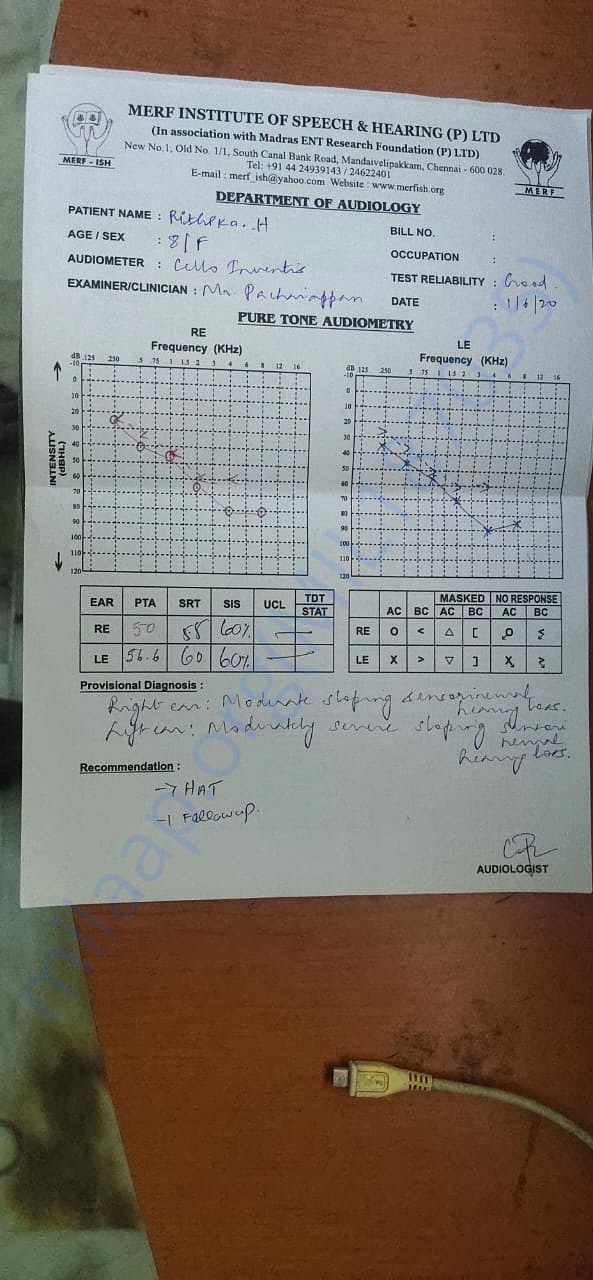 MERF INSTITUTE OF SPEECH & HEARING (P) LTD
(In association with Madras ENT Research Foundation (P) LTD)
New No.1, Old No. 1/1, South Canal Bank Road, Mandaivelipakkam, Chennai - 600 028.
Tel: +91 44 24939143 / 24622401
E-mail : merf_ish@yahoo.com Website : www.merfish.org
MERF - ISH
MERF
DEPARTMENT OF AUDIOLOGY
PATIENT NAME : Rithika. H
BILL NO. :
AGE / SEX : 8/F
OCCUPATION :
AUDIOMETER : Cello Inventis
TEST RELIABILITY : Good
EXAMINER/CLINICIAN : Mr. Pachaiappan
DATE : 1/6/20
PURE TONE AUDIOMETRY
RE
Frequency (KHz)
dB .125 .250 .5 .75 1 1.5 2 3 4 6 8 12 16
-10
0
10
20
30
40
50
60
70
80
90
100
110
120
INTENSITY
(dBHL)
LE
Frequency (KHz)
dB .125 .250 .5 .75 1 1.5 2 3 4 6 8 12 16
-10
0
10
20
30
40
50
60
70
80
90
100
110
120
EAR PTA SRT SIS UCL TDT STAT
RE 50 55 60% —
LE 56.6 60 60% —
MASKED NO RESPONSE
AC BC AC BC AC BC
RE O < △ [
LE X > ▽ ]
Provisional Diagnosis :
Right ear: Moderate sloping sensorineural
hearing loss.
Left ear: Moderately severe sloping sensori
neural
hearing loss.
Recommendation :
→ HAT
→ Followup.
AUDIOLOGIST
milaap.org